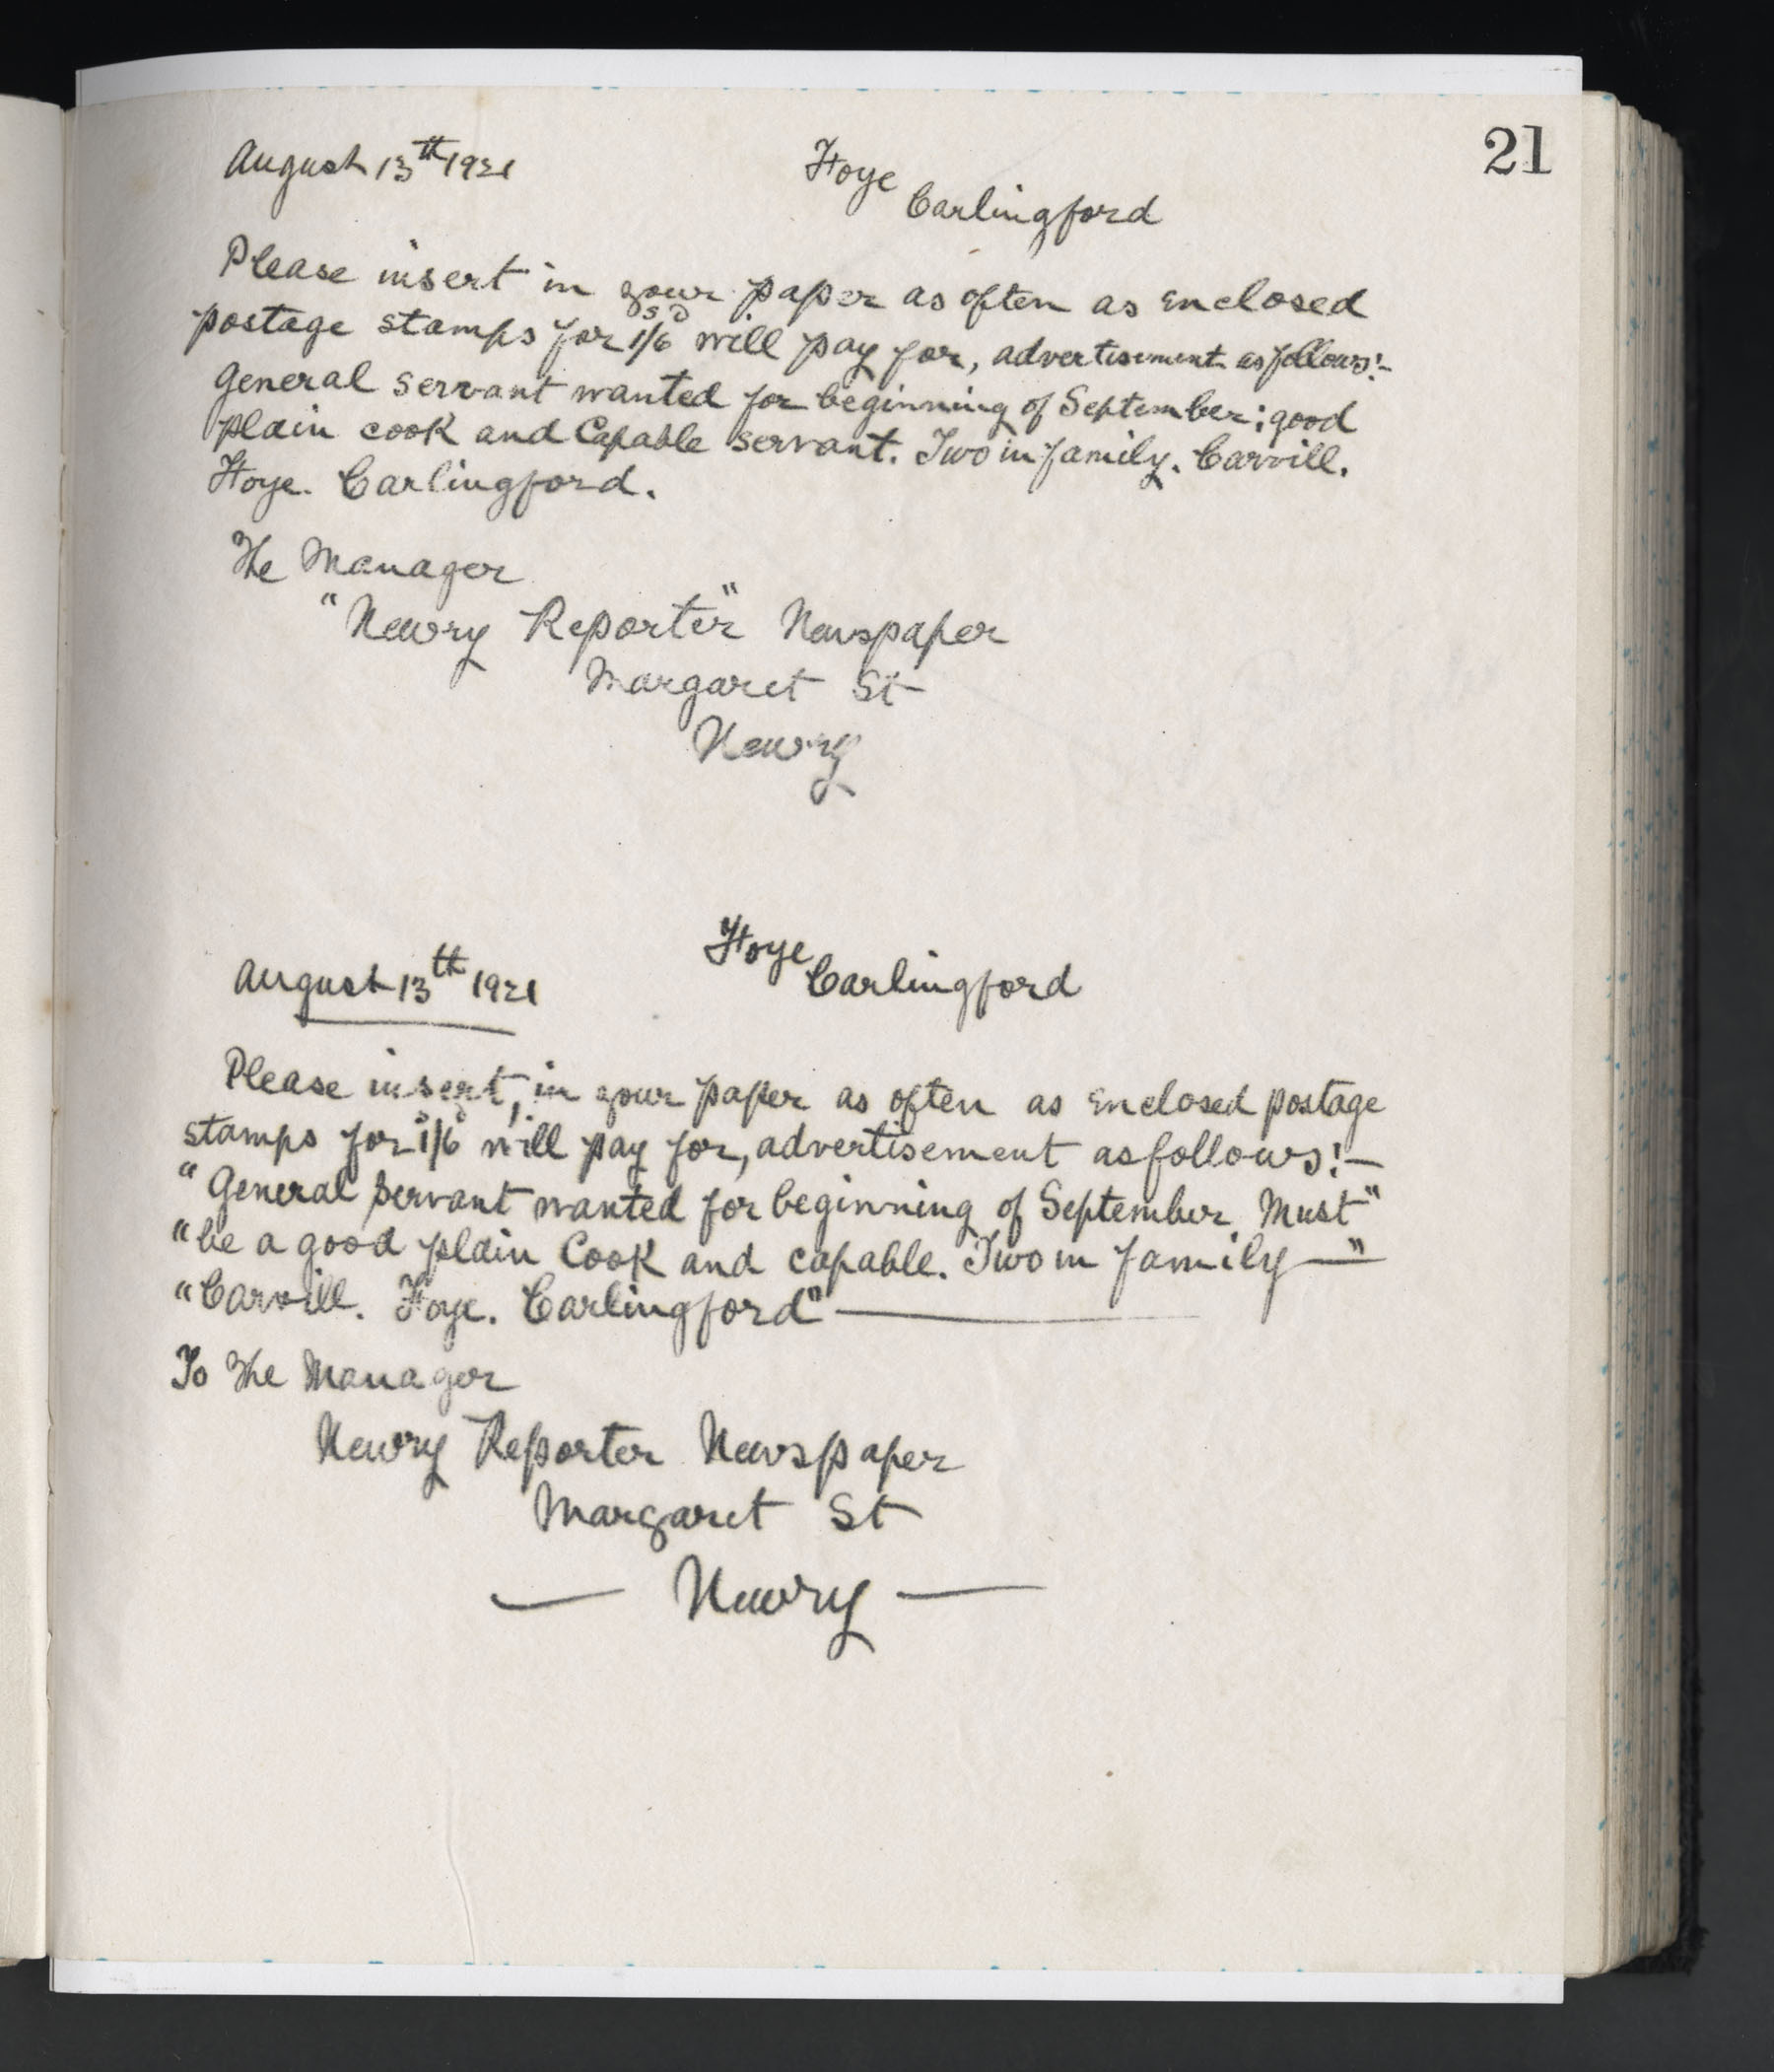 21
August 13th 1921
Foye
Carlingford
Please insert in your paper as often as enclosed
postage stamps for 1s/6d will pay for, advertisement as follows:-
General servant wanted for beginning of September; good
plain cook and Capable servant. Two in family. Carvill.
Foye. Carlingford.
The Manager
"Newry Reporter" Newspaper
Margaret St
Newry
Foye
Carlingford
August 13th 1921
Please insert, in your paper as often as enclosed postage
stamps for 1s/6d will pay for, advertisement as follows:-
"General servant wanted for beginning of September Must"
"be a good plain Cook and capable. Two in family—"
"Carvill. Foye. Carlingford"—
To The Manager
Newry Reporter Newspaper
Margaret St
— Newry —